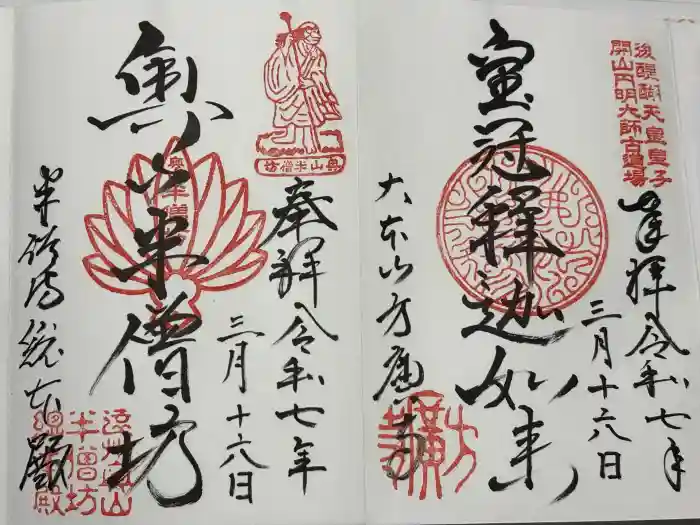 後醍醐天皇皇子
開山円明大師古道場
奉拝 令和七年
三月十六日
宝冠釋迦如来
方廣寺
大本山方廣寺
奥山半僧坊
奉拝 令和七年
三月十六日
奥山半僧坊
半僧坊総本殿
遠江奥山
半僧坊
総本殿